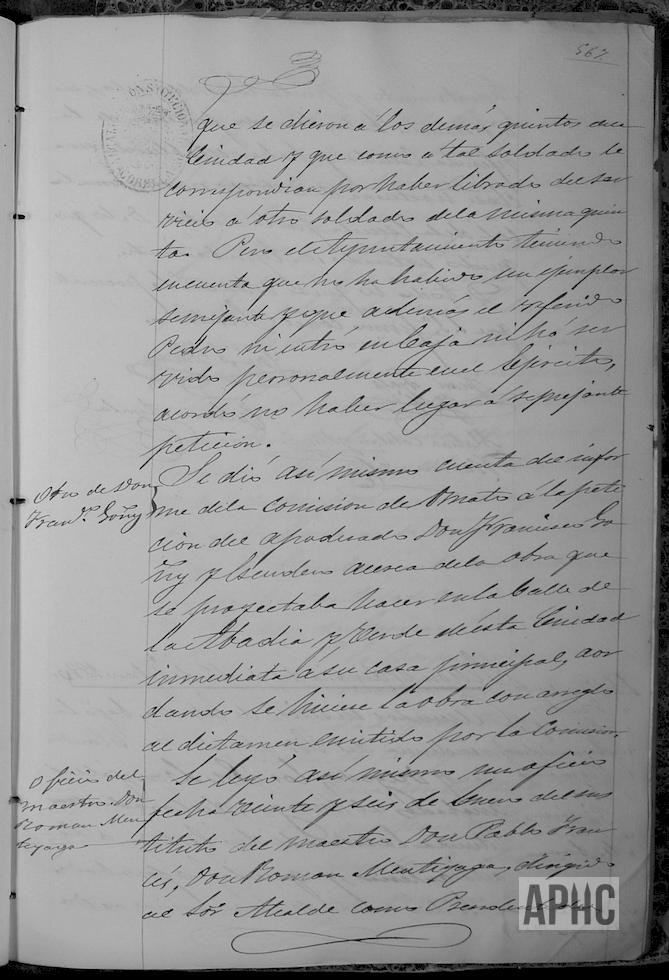 567
que se dieron á los demás quintos de la
Ciudad y que como á tal soldado le
correspondian por haber librado del ser
vicio á otro soldado de la misma quin
ta. Pero el Ayuntamiento teniendo
en cuenta que no ha habido un ejemplar
semejante y que además el referido
Pedro ni entró en Caja ni há ser
vido personalmente en el Ejército,
acordó no haber lugar á semejante
peticion.
Obra de Don
Franco. Goñy
Se dió asi mismo cuenta del infor
me de la comision de Ornato á la peti
cion del apoderado Don Francisco Go
ñy y Escudero acerca de la obra que
se proyectaba hacer en la Calle de
la Abadia y Verde de ésta Ciudad
inmediata á su casa principal, acor
dando se hiciese la obra con arreglo
al dictamen emitido por la Comision.
Oficio del
maestro Don
Roman Men
tigaga
Se leyó asi mismo un oficio
fecha veinte y seis de Enero del sus
tituto del maestro Don Pablo Fran
cés, Don Roman Mentigaga, dirigido
al Sor. Alcalde como Presidente
APHC